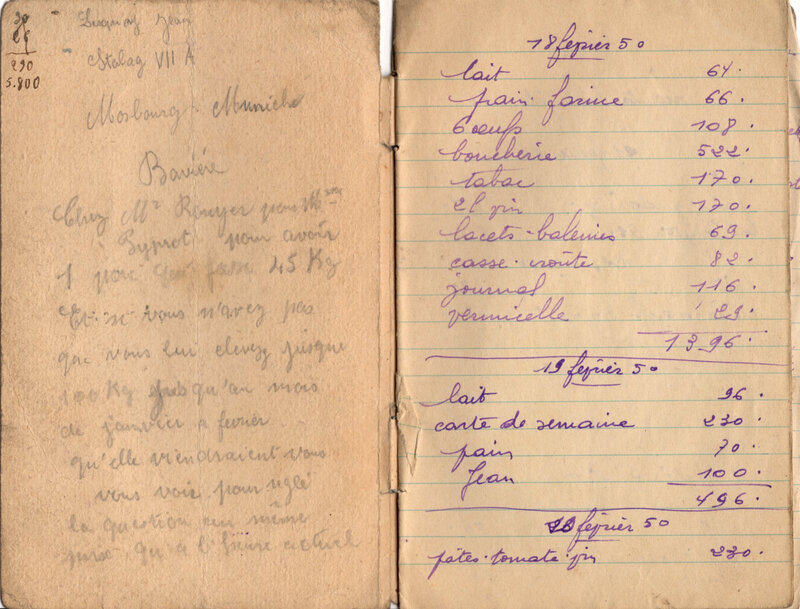 29
290
5.800
Jean
Stalag VII A
Mosbourg - Munich
Bavière
Chez Mr Rouyer pour Mme
à pour avoir
1 porc qui fasse 45 Kg
Et si vous n'avez pas
que vous lui elevez jusque
100 Kg jusqu'au mois
de janvier a fevrier
qu'elle viendraient vous
vous voir pour réglé
la question au même
prix qu'a l'heure actuel
18 février 50
lait 64.
pain. farine 66.
6 œufs 108.
boucherie 522.
tabac 170.
2l vin 170.
lacets-baleines 69.
casse-croûte 82.
journal 116.
vermicelle 29.
1396.
19 février 50
lait 96.
carte de semaine 230.
pain 70.
Jean 100.
496.
20 février 50
pâtes-tomate-vin 230.